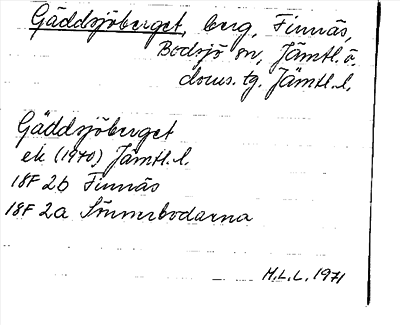 Gäddsjöberget, berg, Finnäs,
Bodsjö sn, Jämtl. ö.
doms. tg. Jämtl. l.
Gäddsjöberget
ek (1970) Jämtl. l.
18F 2b Finnäs
18F 2a Sönnerbodarna
H.L.L. 1971